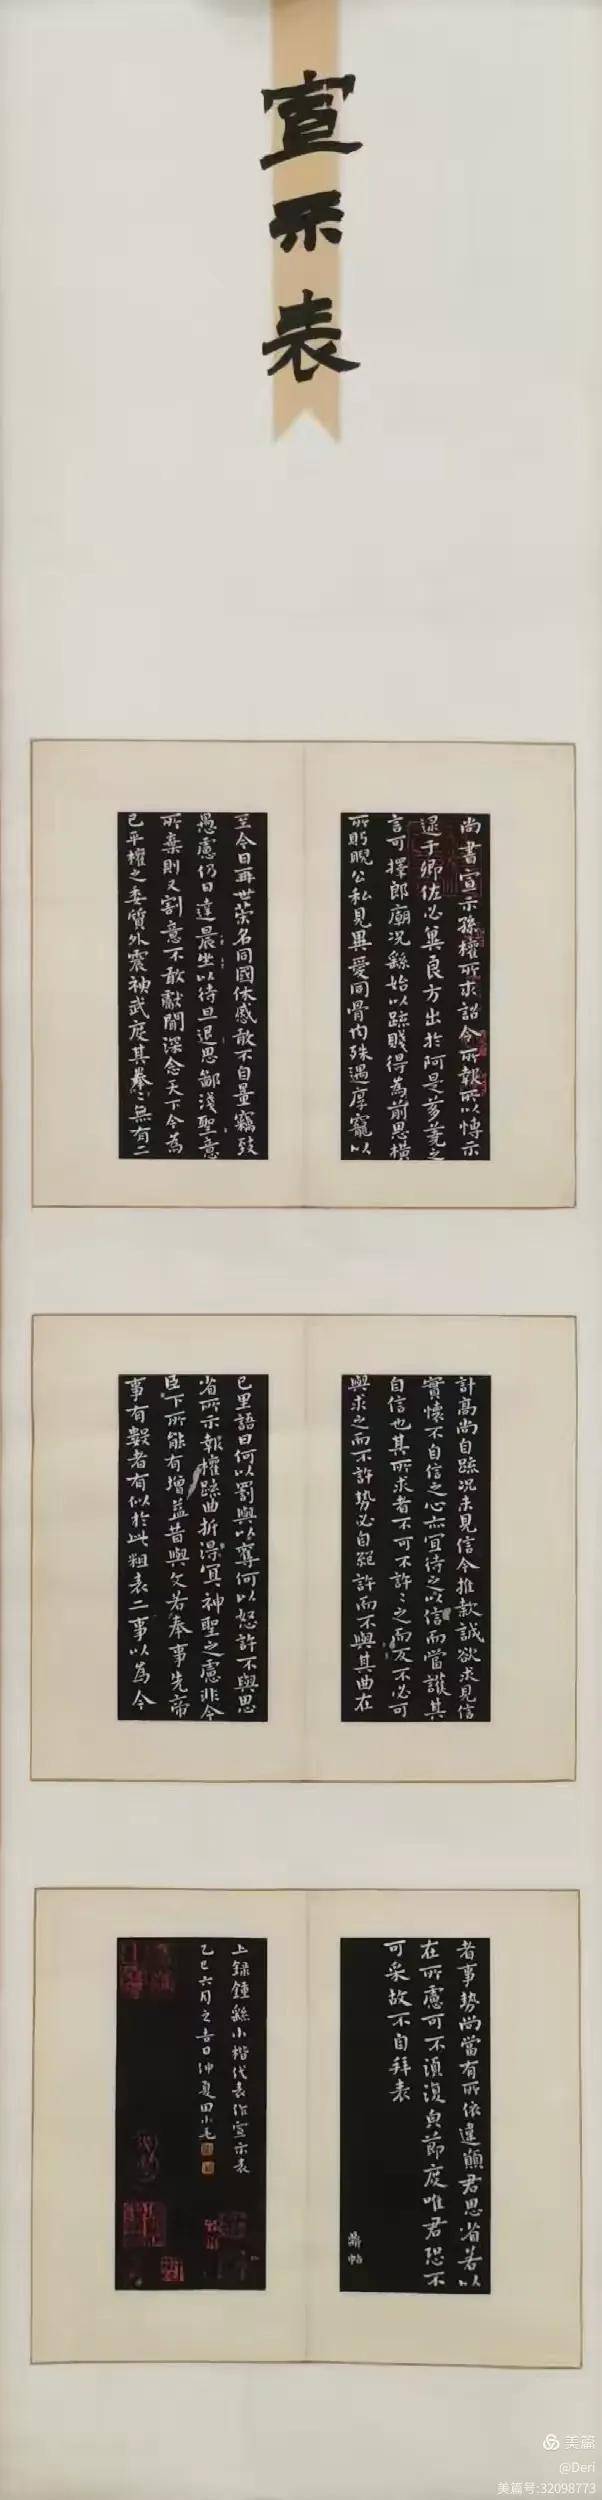 宣示表
尚書宣示孫權所求詔令所報所以博示
逮于卿佐必冀良方出於阿是芻蕘之
言可擇郎廟況繇始以疏賤得為前恩橫
所眄睨公私見異愛同骨肉殊遇厚寵以
至今日再世榮名同國休慼敢不自量竊致
愚慮仍日達晨坐以待旦退思鄙淺聖意
所棄則又割意不敢獻聞深念天下今為
已平權之委質外震神武度其拳〻無有二
計高尚自疏況未見信今推款誠欲求見信
實懷不自信之心亦宜待之以信而當護其
自信也其所求者不可不許〻之而反不必可
與求之而不許勢必自絕許而不與其曲在
己里語曰何以罰與以奪何以怒許不與思
省所示報權疏曲折得冥神聖之慮非今
臣下所能有增益昔與文若奉事先帝
事有數者有似於此粗表二事以為今
者事勢尚當有所依違願君思省若以
在所慮可不須復與節度唯君恐不
可采故不自拜表
鼎帖
上錄鍾繇小楷代表作宣示表
乙巳六月之吉日仲夏田小毛
美篇
@Deri
美篇号:32098773